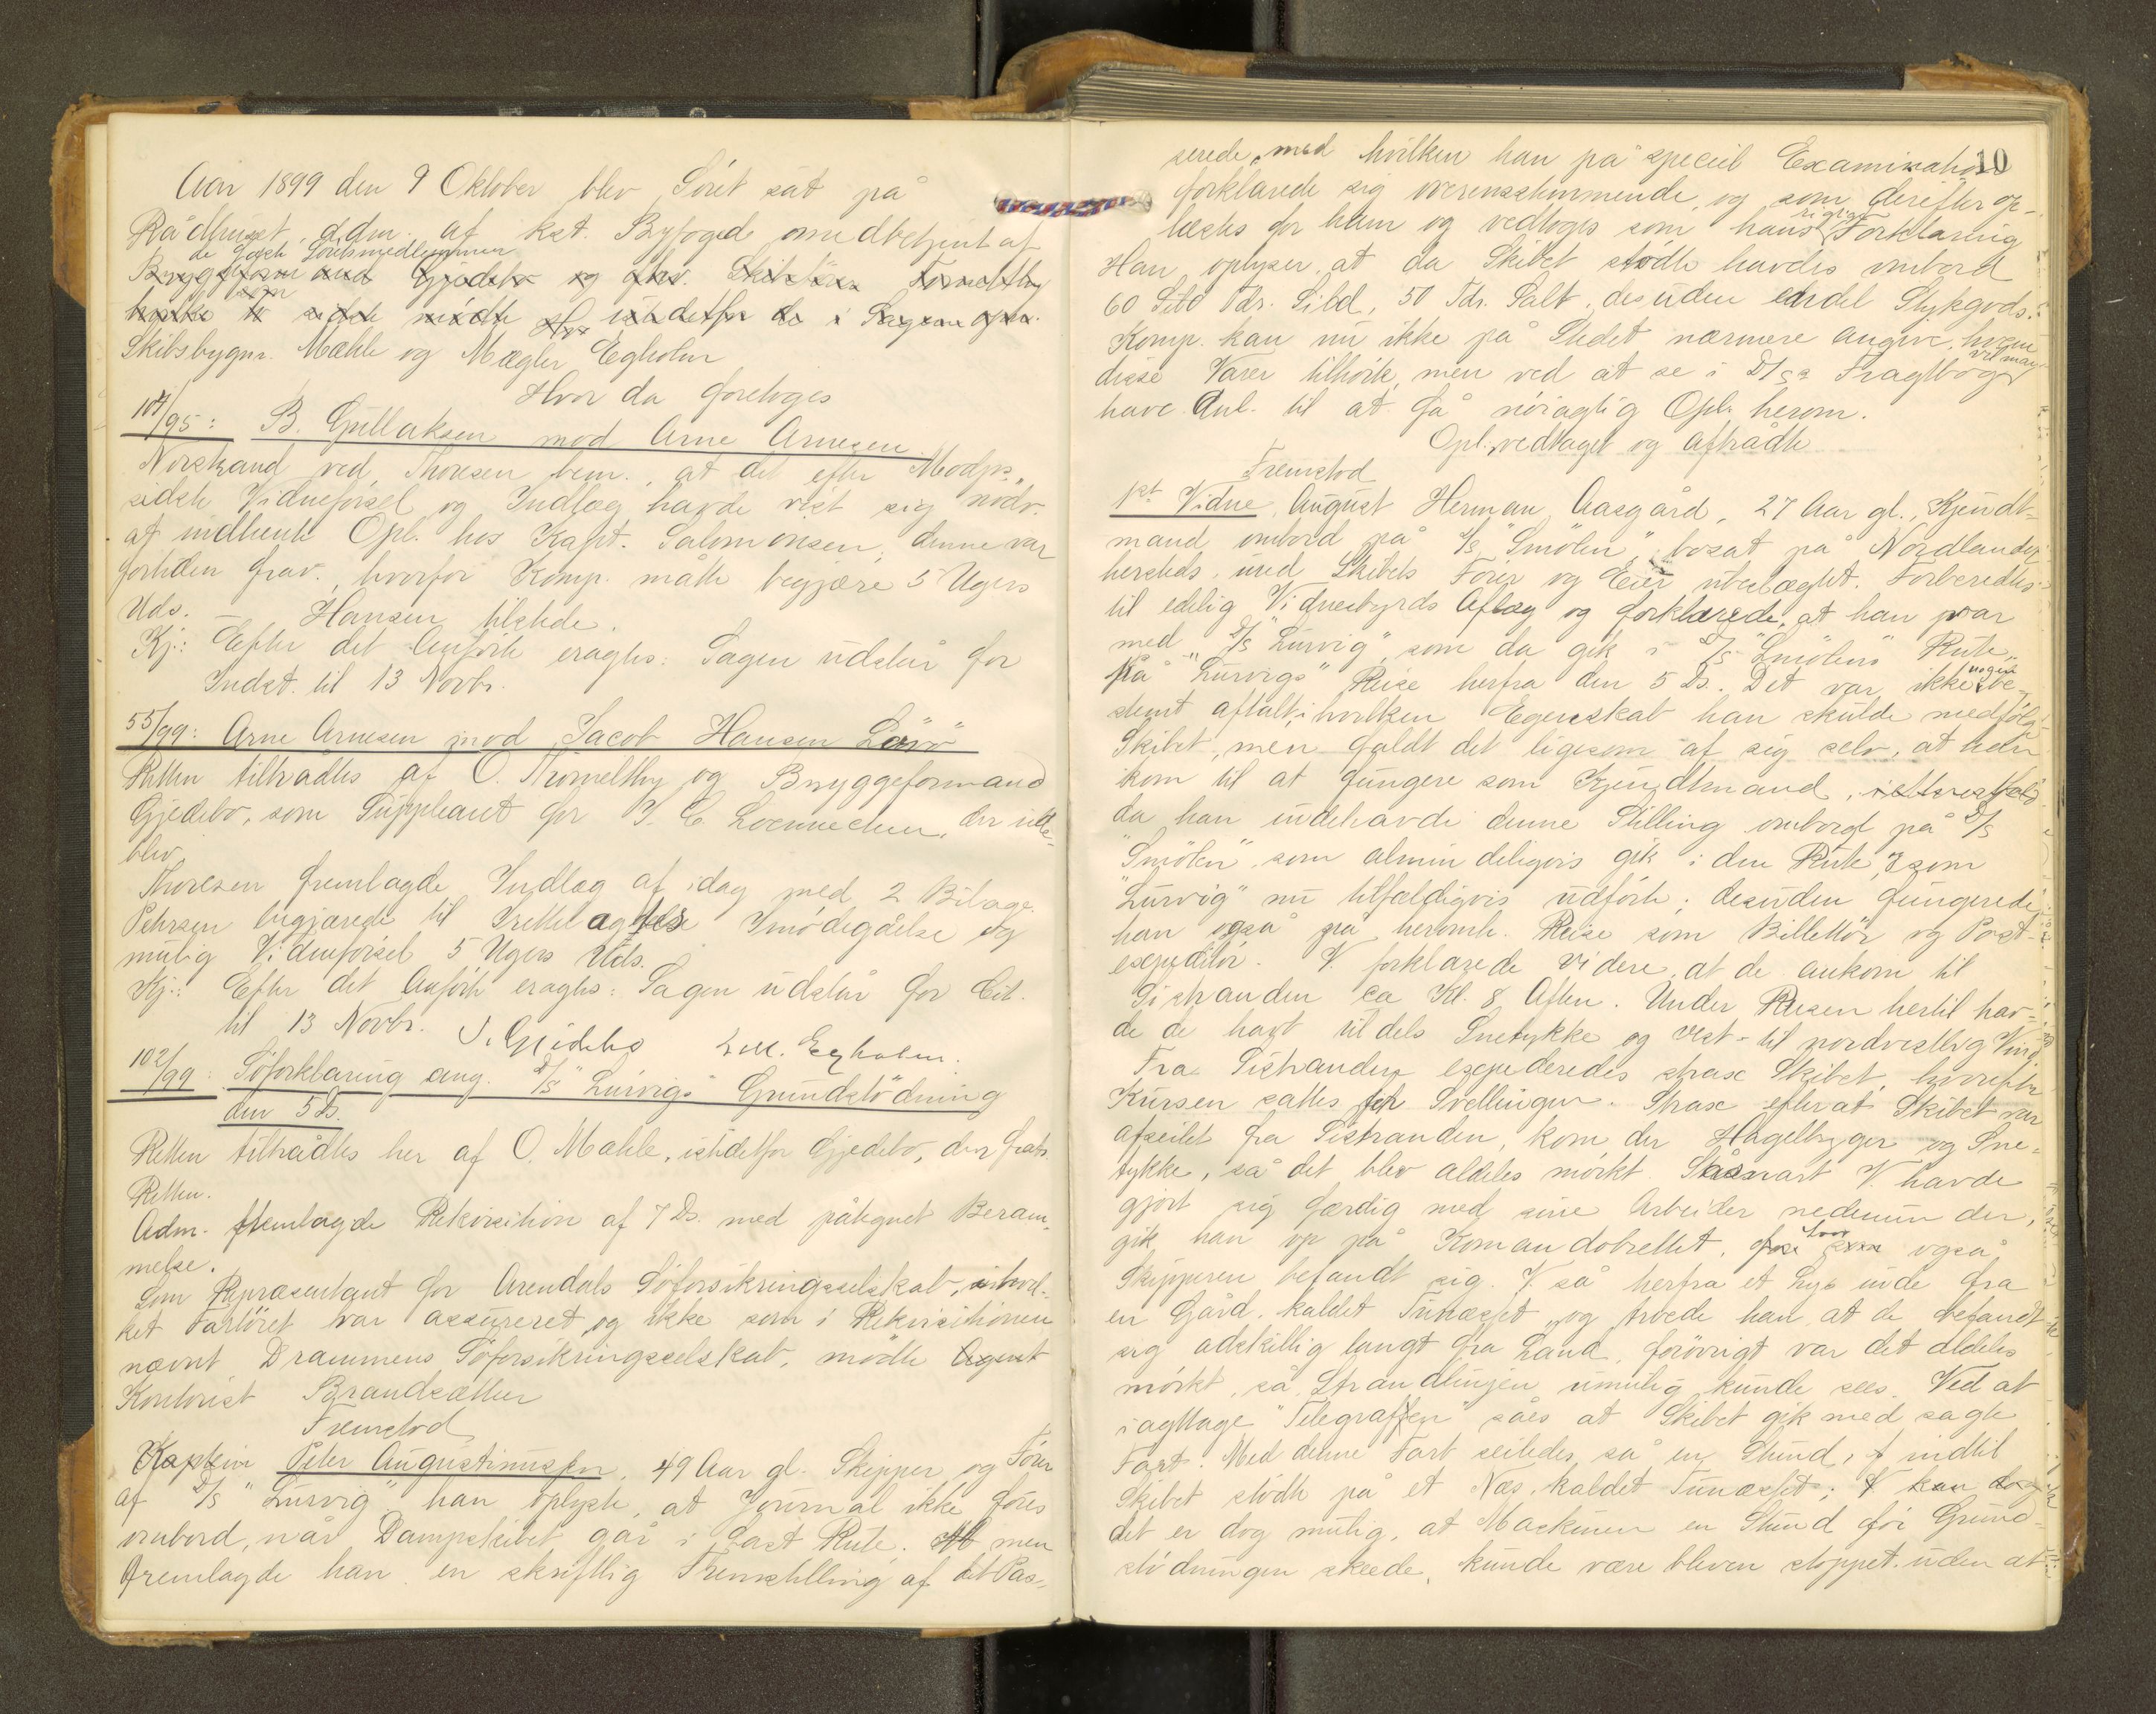 Aar 1899 den 9 Oktober blev Söret sat på
Rådhuset, adm. af kst. Byfoged omedbetjent af
de faste Söretsmedlemmer
Bryggeform and Gjedebo og
Skibsbygm. Mæhle og Mægler Egholm
Hvor da foretoges
107/95: B. Gullaksen mod Arne Arnesen.
Norstrand ved Thoresen bem., at det efter Modps.
sidste Vidneförsel og Indlæg havde vist sig nödv.
at indhente Opl. hos Kapt. Salomonsen; denne var
fortiden frav., hvorfor Komp. måtte begjære 5 Ugers
Uds. – Hansen tilstede.
Kj.: Efter det Anförte eragtes: Sagen udstår for
Indst. til 13 Novbr.
55/99: Arne Arnesen mod Jacob Hansen
Retten tiltrådtes af O. Tromelthy og Bryggeformand
Gjedebo, som Suppleant for J. C. Loennechen, der ude-
blev
Thoresen fremlagde Indlæg af idag med 2 Bilage.
Petersen begjærede til Irettelæggelse Imödegåelse og
mulig Vidneförsel 5 Ugers Uds.
Kj.: Efter det Anförte eragtes: Sagen udstår for Cit.
til 13 Novbr. J. Gjedebo Egholm.
102/99: Söforklaring ang. D/S "Lurvigs" Grundstödning
den 5 Ds.
Retten tiltrådtes her af O. Mæhle, istedetfor Gjedebo, der fratr.
Retten.
Adm. fremlagde Rekvisition af 7 Ds. med påtegnet Beram-
melse.
Som Repræsentant for Arendals Söforsikringsselskab, i hvil-
ket Fartöiet var assureret, og ikke som i Rekvisitionen
nævnt Drammens Söforsikringsselskab, mödte Agent
Kontorist Brandsætter
Fremstod
Kaptein Peter Augustinussen, 49 Aar gl. Skipper og Förer
af D/S "Lurvig". han oplyste, at Journal ikke föres
ombord, når Dampskibet går i fast Rute. men
fremlagde han en skriftlig Fremstilling af det Pas-
10
serede, med hvilken han på speciel Examination
forklarede sig overensstemmende, og som derefter op-
læstes for ham og vedtoges som hans rigtige Forklaring
Han oplyser at da Skibet stödte havdes ombord
60 Tdr. Sild, 50 Tdr. Salt, desuden endel Stykgods.
Komp. kan nu ikke på Stedet nærmere angive, hvem
disse Varer tilhörte, men ved at se i D/Ss Fragtbog vil man
have Anl. til at få nöiagtig Opl. herom.
Opl. vedtaget og aftrådte
Fremstod
1st Vidne, August Herman Aasgård, 27 Aar gl., Kjendt-
mand ombord på D/S "Smölen", bosat på Nordlandet
hersteds, med Skibets Förer og Eier ubeslægtet. Forberedtes
til edelig Vidnesbyrds Aflæg og forklarede, at han var
med D/S "Lurvig", som da gik i D/S "Smölens" Rute,
på "Lurvigs" Reise herfra den 5 Ds. Det var ikke noget be-
stemt aftalt, i hvilken Egenskab han skulde medfölge
Skibet, men faldt det ligesom af sig selv, at han
kom til at fungere som Kjendtmand,
da han indehavde denne Stilling ombord på D/S
"Smölen" som almindeligvis gik i den Rute, som
"Lurvig" nu tilfældigvis udförte; desuden fungerede
han også på heromh. Reise som Billettör og Post-
expeditör. V. forklarede videre, at de ankom til
Sistranden ca Kl. 8 Aften. Under Reisen hertil hav-
de de havt tildels Snetykke og vest- til nordvestlig Vind
Fra Sistranden expederedes strax Skibet, hvorefter
Kursen sattes for Svellingen. Strax efterat Skibet var
afseilet fra Sistranden, kom der Hagelbyger og Sne-
tykke, så det blev aldeles mörkt. Såsnart V. havde
gjort sig færdig med sine Arbeider nedenunder,
gik han op på Komandobrettet, hvor også
Skipperen befandt sig. V. så herfra et Lys inde fra
en Gård, kaldet Tunæsset, og troede han at de befandt
sig adskillig langt fra Land, forövrigt var det aldeles
mörkt, så Strandlinjen umulig kunde sees. Ved at
iagttage "Telegrafen" såes at Skibet gik med sagte
Fart. Med denne Fart seiledes så en Stund, indtil
Skibet stödte på et Næs, kaldet Tunæsset; V kan dog
det er dog mulig, at Maskinen en Stund för Grund-
stödningen skeede, kunde være bleven stoppet uden at